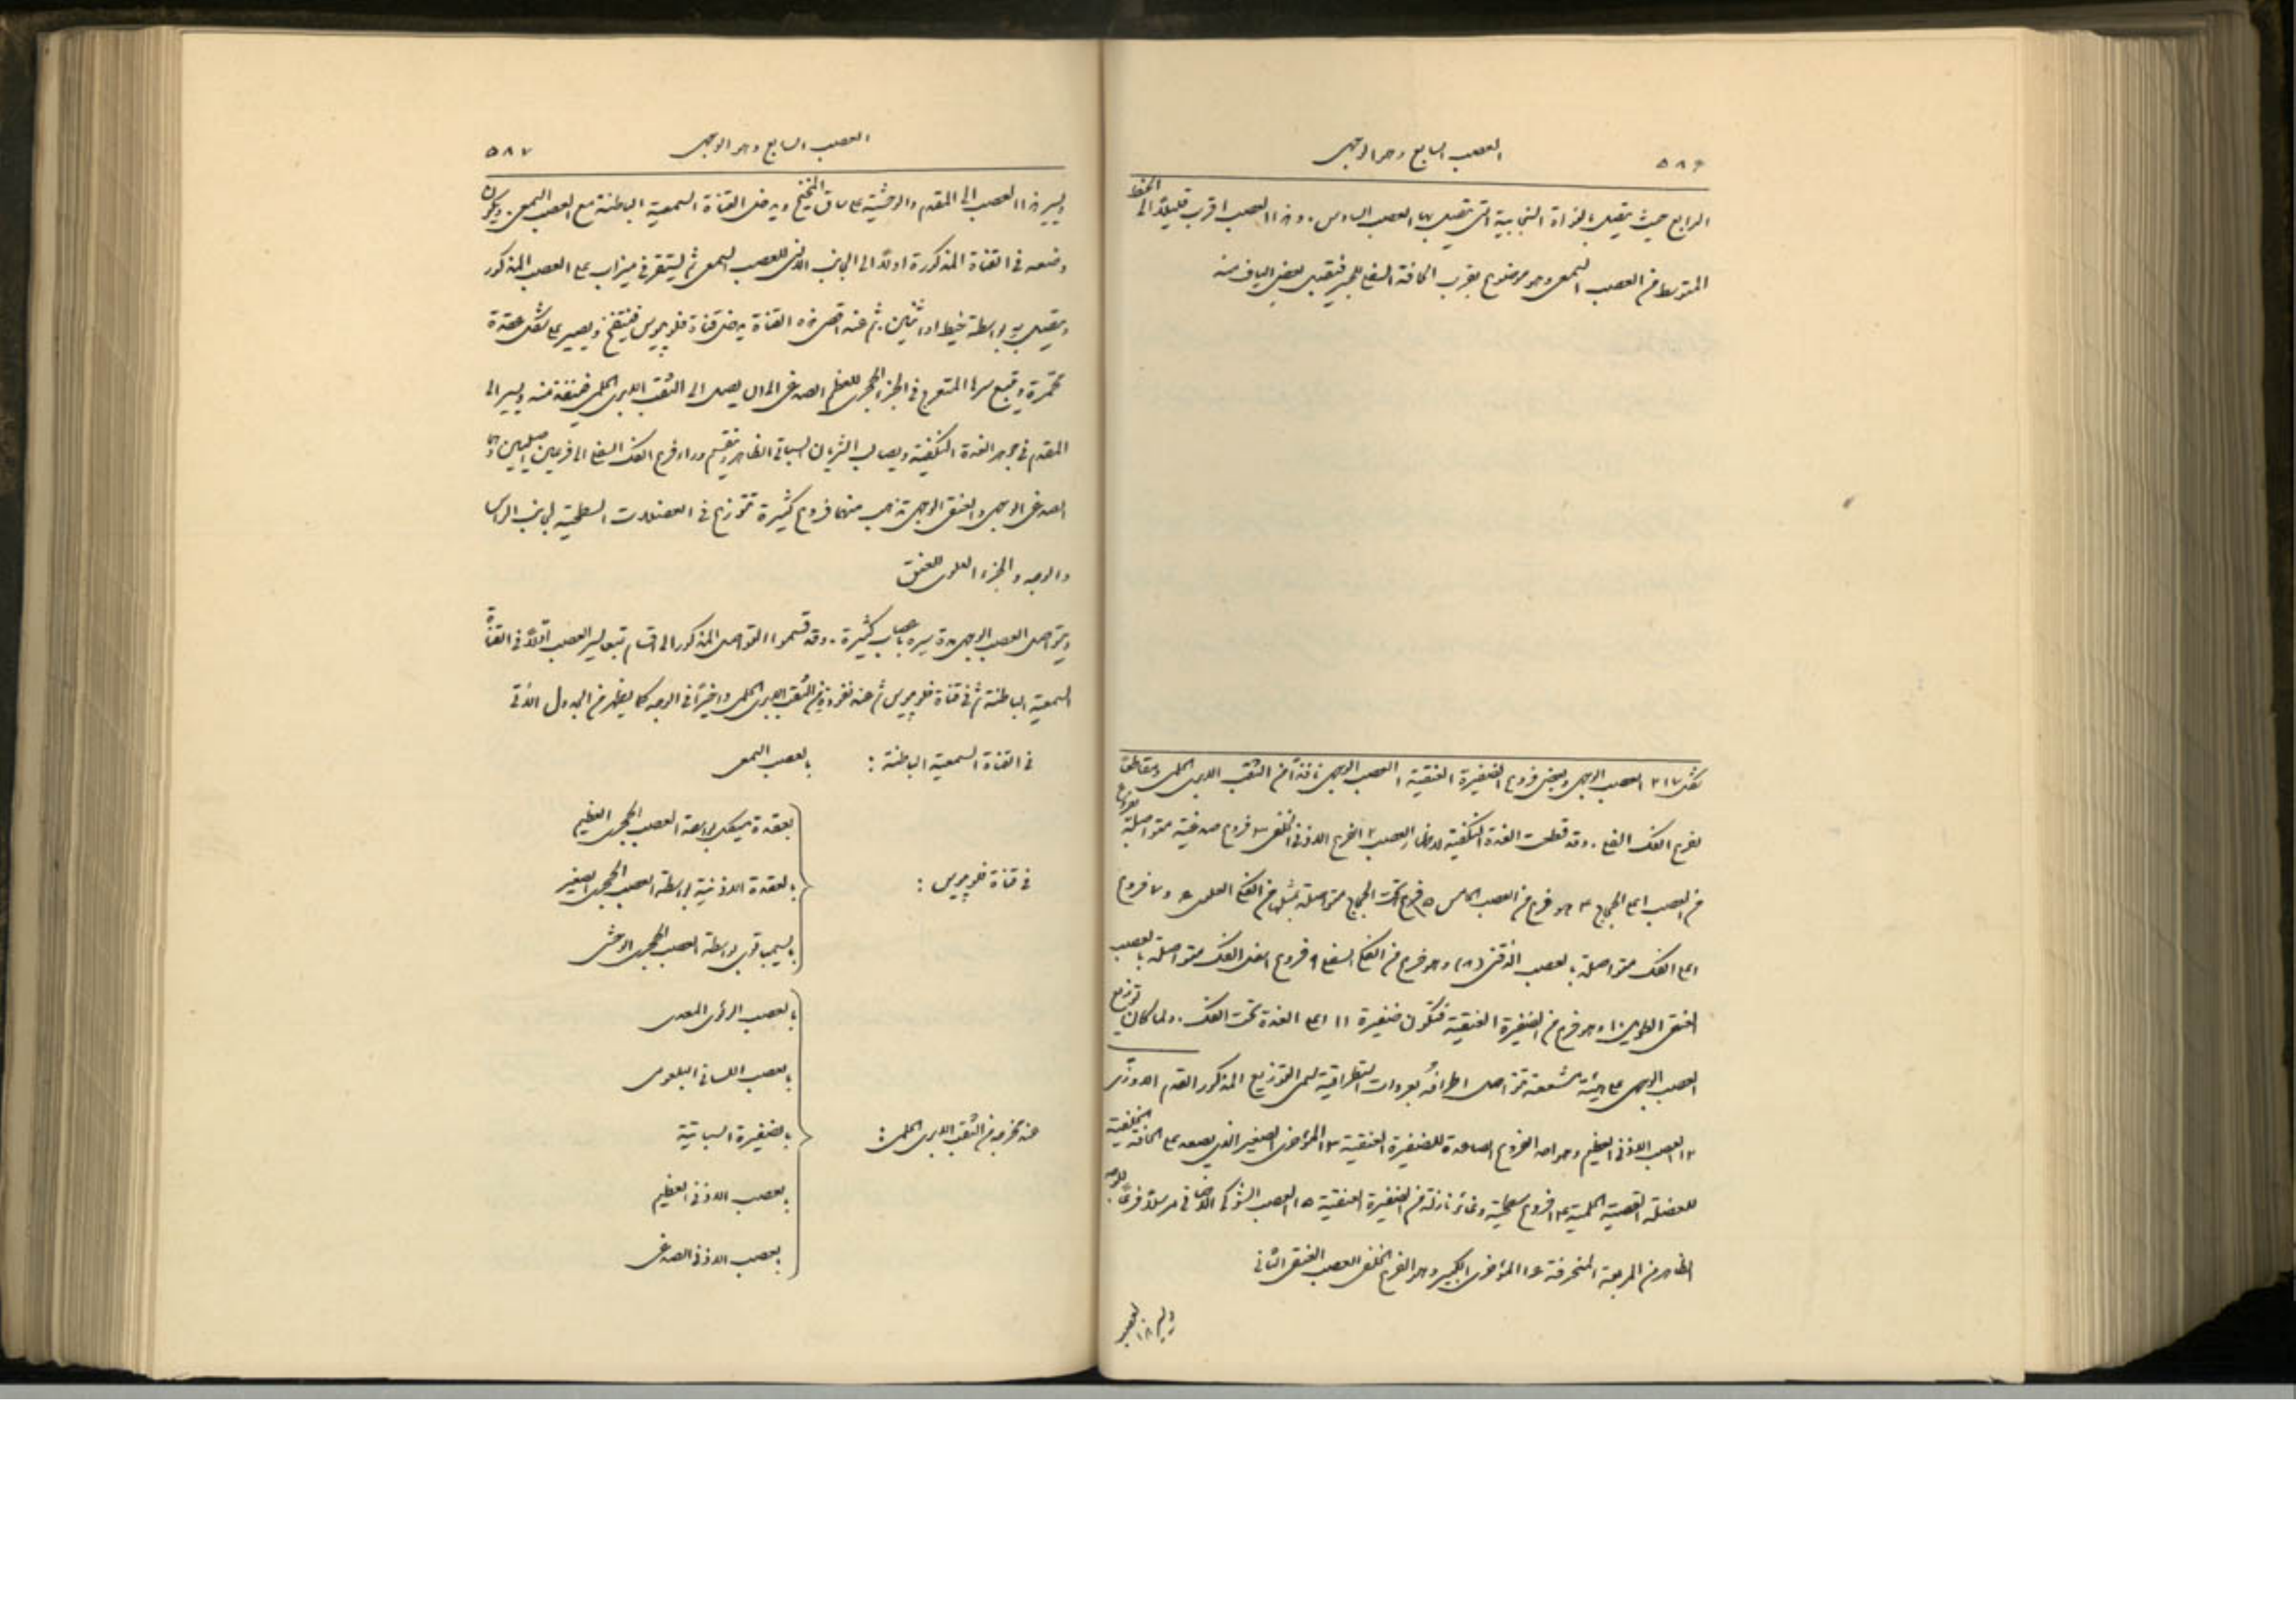 ٥٨٦
العصب السابع وهو الوجهي
الرابع حيث يتصل بالنواة النجابية التي يتصل بها العصب السادس. وهذا العصب اقرب قليلًا الى الخط
المتوسط من العصب السمعي وهو موضوع بقرب الحافة السفلى للجسر فتقبل بعض الياف منه
شكل ٢١٧ العصب الوجهي وبعض فروع الضفيرة العنقية ١ العصب الوجهي نافذًا من الثقب الابري الحلمي ومقاطعًا
لفرع الفك السفلي. وقد قطعت الغدة النكفية لاظهار العصب ٢ الفرع الاذني الخلفي ٣ فروع صدغية متواصلة بفروع
من العصب اعلى الحجاج ٤ وهو فرع من العصب الخامس ٥ فروع تحت الحجاج متواصلة بمثلها من الفكي العلوي ٦ و٧ فروع
اعلى الفك متواصلة بالعصب الذقني (٨) وهو فرع من الفكي السفلي ٩ فروع اسفل الفك متواصلة بالعصب
العنقي الطويل ١٠ وهو فرع من الضفيرة العنقية فتكون ضفيرة ١١ اعلى الغدة تحت الفك. ولما كان توزيع
العصب الوجهي على هيئة متشععة تتواصل اطرافه بعروات استطراقية سمي التوزيع المذكور القدم الاوزي
١٢ العصب الاذني العظيم وهو احد الفروع الصاعدة للضفيرة العنقية ١٣ المؤخري الصغير الذي يصعد على الحافة الخلفية
للعضلة القصية الحلمية ١٤ فروع سطحية وغائرة نازلة من الضفيرة العنقية ١٥ العصب الشوكي الاضافي مرسلًا فرعًا للوجه
الظاهر من المربعة المنحرفة ١٦ المؤخري الكبير وهو الفرع الخلفي للعصب العنقي الثاني
٥٨٧
العصب السابع وهو الوجهي
ويسير هذا العصب الى المقدم والوحشية على ساق المخيخ ويدخل القناة السمعية الباطنة مع العصب السمعي. ويكون
وضعه في القناة المذكورة اولًا الى الجانب الانسي للعصب السمعي ثم يستقر في ميزاب على العصب المذكور
ويتصل به بواسطة خيط او اثنين. ثم عند اقصى هذه القناة يدخل قناة فلوپيوس فينتفخ ويصير على شكل عقدة
محمرة ويتبع سيرها المتعرج في الجزء الحجري للعظم الصدغي الى ان يصل الى الثقب الابري الحلمي فينفذ منه ويسير الى
المقدم في جوهر الغدة النكفية ويصالب الشريان السباتي الظاهر وينقسم وراء فرع الفك السفلي الى فرعين اصليين وهما
الصدغي الوجهي والعنقي الوجهي تذهب منهما فروع كثيرة تتوزع في العضلات السطحية لجانب الراس
والوجه والجزء العلوي للعنق
ويتواصل العصب الوجهي مدة سيره باعصاب كثيرة. وقد قسموا التواصل المذكور الى اقسام تتبع سير العصب اولًا في القناة
السمعية الباطنة ثم في قناة فلوپيوس ثم عند نفوذه من الثقب الابري الحلمي واخيرًا في الوجه كما يظهر من الجدول الآتي
في القناة السمعية الباطنة : بالعصب السمعي
بعقدة ميكل بواسطة العصب الحجري العظيم
في قناة فلوپيوس : بالعقدة الاذنية بواسطة العصب الحجري الصغير
بالسمپاتوي بواسطة العصب الحجري الوحشي
بالعصب الرئوي المعدي
بالعصب اللساني البلعومي
عند خروجه من الثقب الابري الحلمي : بالضفيرة السباتية
بالعصب الاذني العظيم
بالعصب الاذني الصدغي